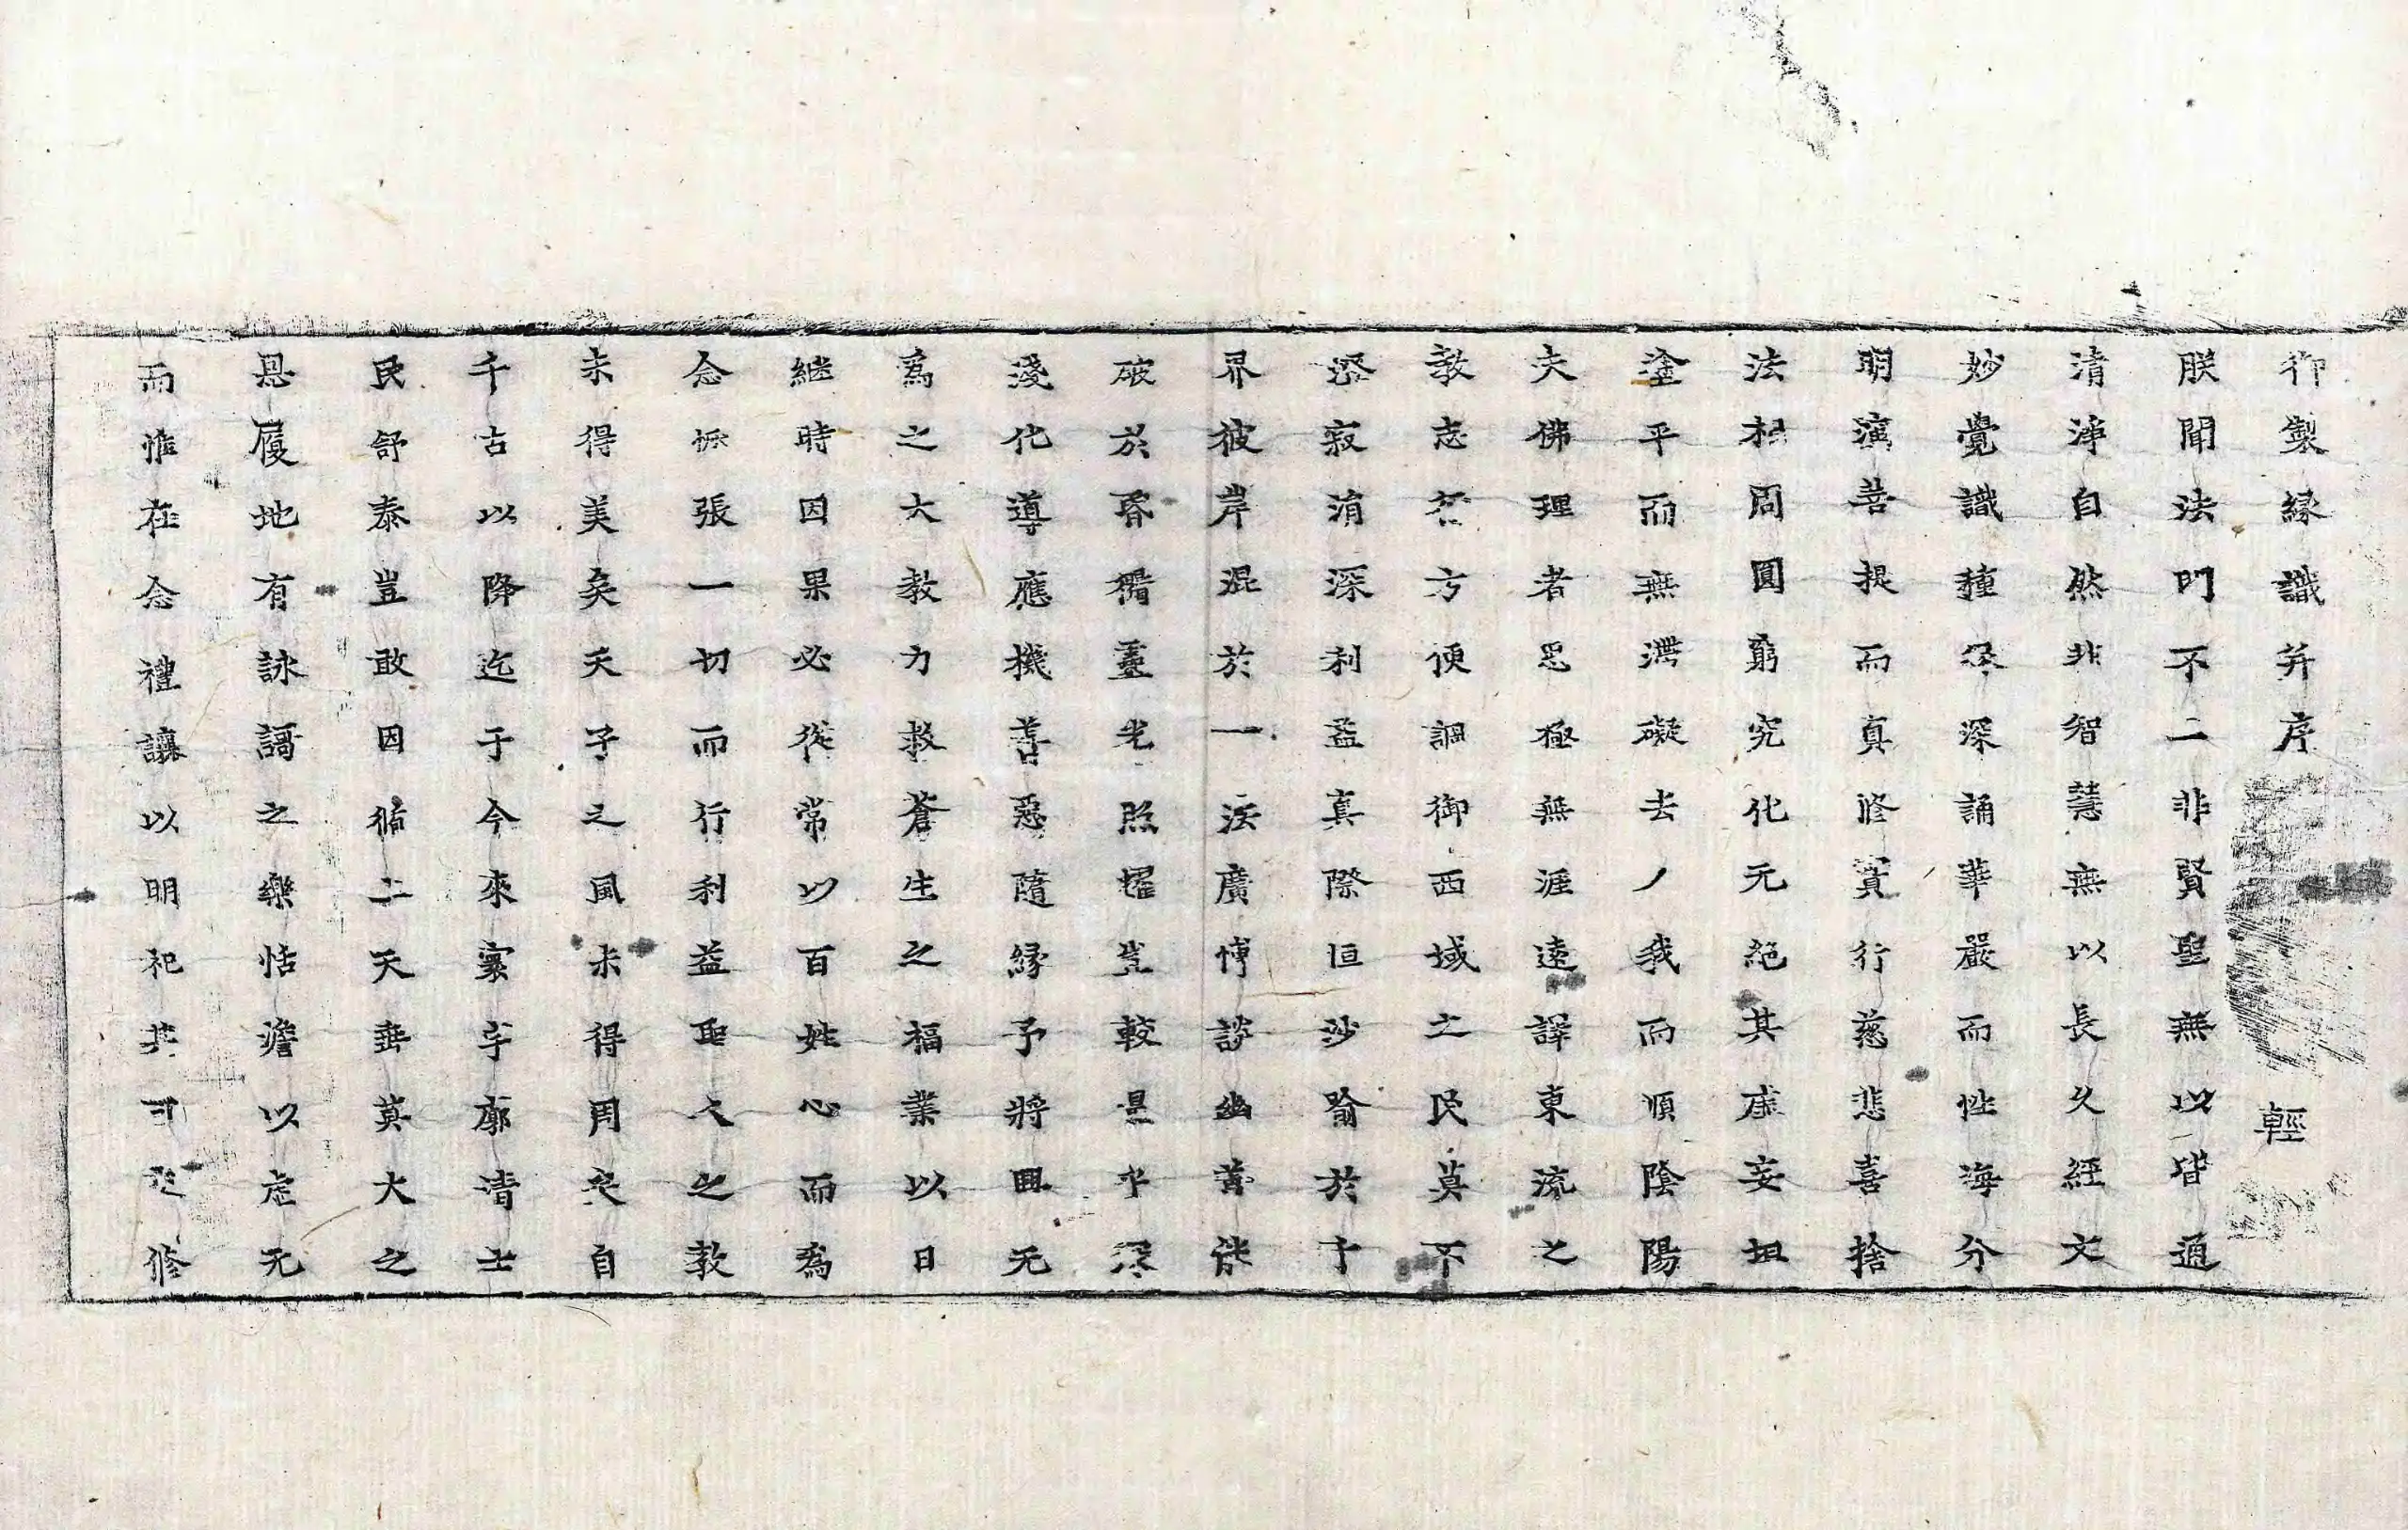 御製緣識并序 輕
朕聞法門不二非賢聖無以皆通
清淨自然非智慧無以長久經文
妙覺識種深誦華嚴而性海分
明演菩提而真修實行慈悲喜捨
法相周圓窮究化元絕其虛妄坦
塗平而無滯礙去人我而順陰陽
夫佛理者思極無涯遠譯東流之
教志若方便調御西域之民莫不
恐寂消深利益真際恒沙喻於十
界彼岸混於一法廣博談幽善能
破於昏獨靈光照耀豈較量乎深
淺化導應機善惡隨緣予將冥无
為之大教力救蒼生之福業以日
繼時因果必從常以百姓心而為
念恢張一切而行利益聖人之教
未得美矣天子之風未得周矣自
千古以降迄于今來寰宇廓清士
民舒泰豈敢因循二天垂莫大之
恩履地有詠謌之樂恬澹以虛无
而惟在念禮讓以明祀共可以修